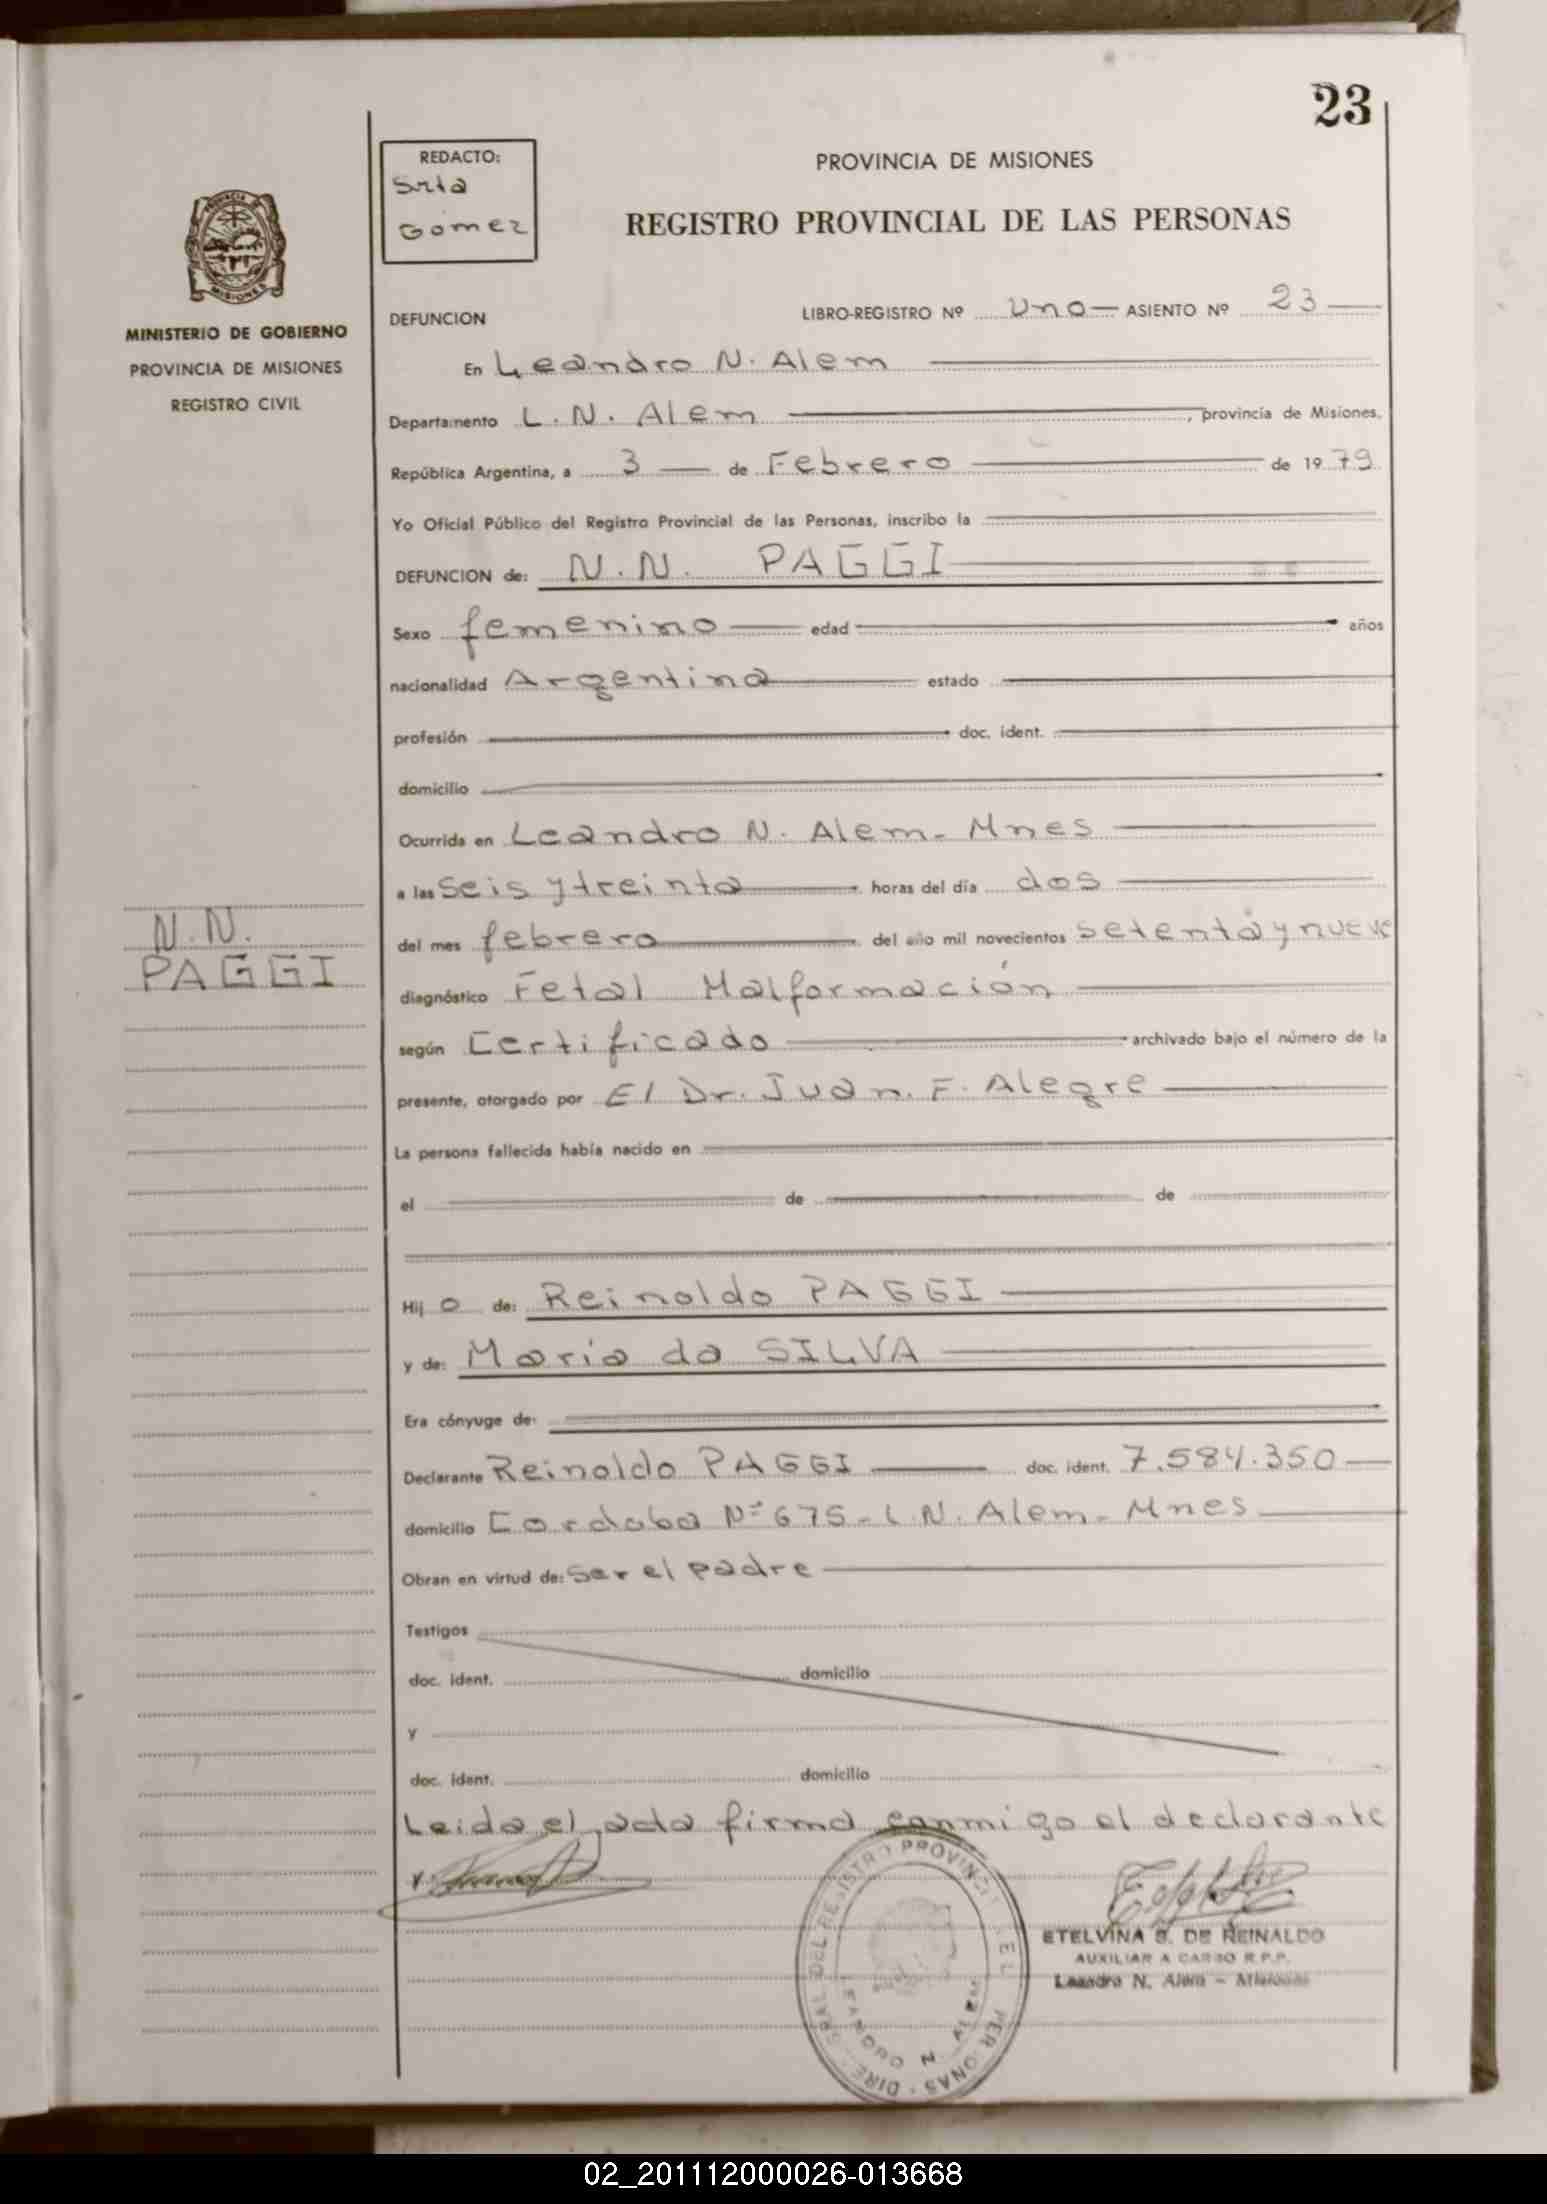 23
REDACTO:
Srta
Gomez
PROVINCIA DE MISIONES
REGISTRO PROVINCIAL DE LAS PERSONAS
MISIONES
MINISTERIO DE GOBIERNO
PROVINCIA DE MISIONES
REGISTRO CIVIL
DEFUNCION LIBRO-REGISTRO Nº Uno ASIENTO Nº 23
En Leandro N. Alem
Departamento L. N. Alem, provincia de Misiones,
República Argentina, a 3 de Febrero de 1979
Yo Oficial Público del Registro Provincial de las Personas, inscribo la
DEFUNCION de: N. N. PAGGI
Sexo femenino edad años
nacionalidad Argentina estado
profesión doc. ident.
domicilio
Ocurrida en Leandro N. Alem - Mnes
a las Seis y treinta horas del día dos
del mes febrero del año mil novecientos setenta y nueve
N. N.
PAGGI
diagnóstico Fetal Malformación
según Certificado archivado bajo el número de la
presente, otorgado por El Dr. Juan. F. Alegre
La persona fallecida había nacido en
el de de
Hij o de: Reinoldo PAGGI
y de: Maria da SILVA
Era cónyuge de:
Declarante Reinoldo PAGGI doc. ident. 7.584.350
domicilio Cordoba Nº 675 - L N. Alem - Mnes
Obran en virtud de: Ser el padre
Testigos
doc. ident. domicilio
y
doc. ident. domicilio
Leida el acta firma conmigo el declarante
ETELVINA S. DE REINALDO
AUXILIAR A CARGO R.P.P.
Leandro N. Alem - Misiones
LEANDRO N. ALEM
02_201112000026-013668